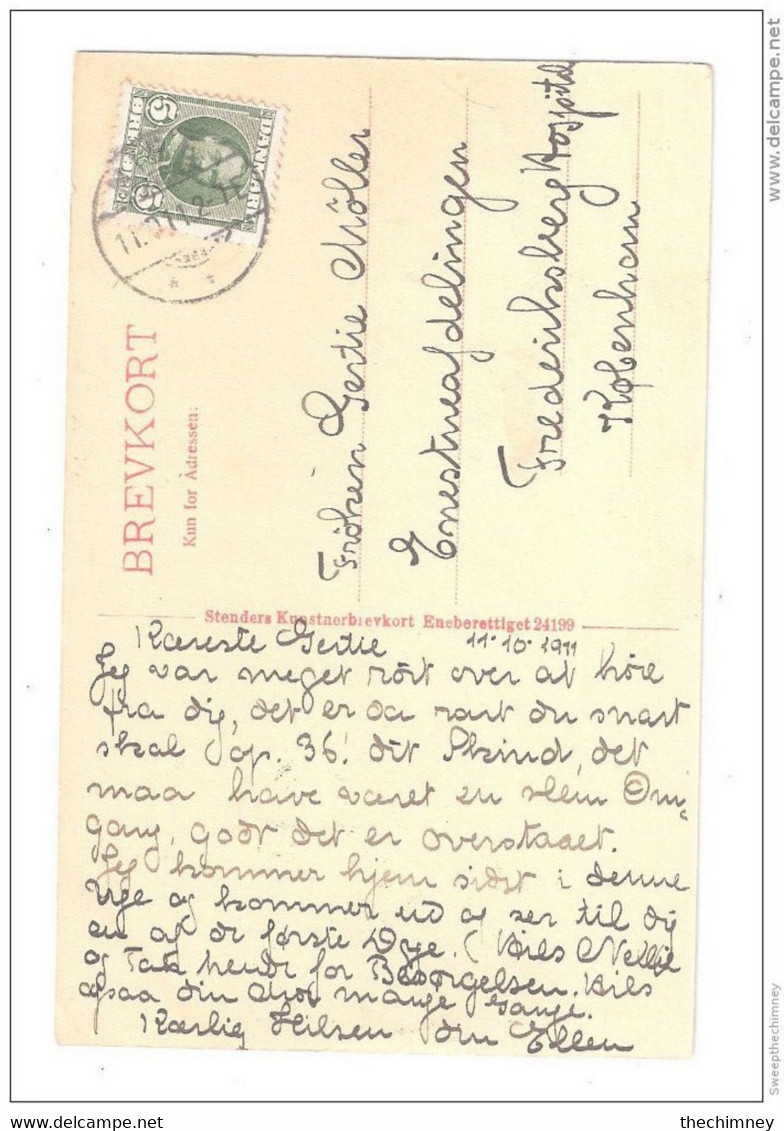 BREVKORT
Kun for Adressen:
DANMARK
5 5
Fröken Gertie Möller
Enestueafdelingen
Frederiksberg Hospital
København
Stenders Kunstnerbrevkort Eneberettiget 24199
Kæreste Gertie 11.10.1911
Jeg var meget rört over at höre
fra dig, det er da rart du snart
skal op. 36! dit Skind, det
maa have været en slem Om-
gang, godt det er overstaaet.
Jeg kommer hjem sidst i denne
Uge og kommer ud og ser til dig
en af de første Dage. (Hils Nellie
og Tak hende for Besörgelsen. Hils
ogsaa din Mor mange Gange.
Kærlig Hilsen din Ellen
www.delcampe.net
Sweepthechimney
thechimney